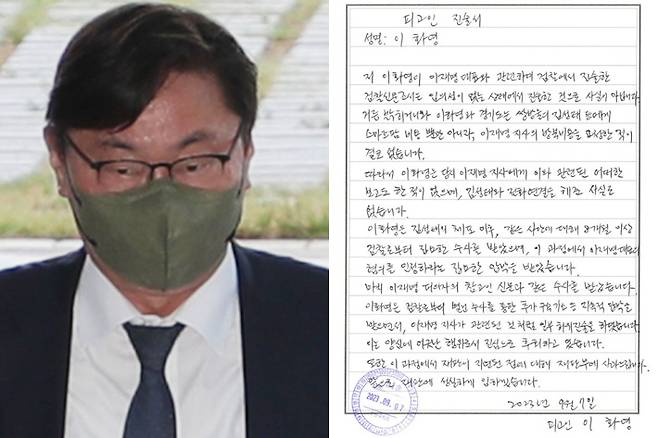 피고인 진술서
성명: 이 화영
저 이화영이 이재명 대표와 관련하여 검찰에서 진술한
검찰신문조서는 임의성이 없는 상태에서 진술한 것으로 사실이 아닙니다.
이화영과 경기도는 쌍방울의 김성태 등에게
스마트팜 비용 뿐만 아니라, 이재명 지사의 방북비용을 요청한 적이
결코 없습니다.
따라서 이화영은 당시 이재명 지사에게 이와 관련된 어떠한
보고도 한 적이 없으며, 김성태와 전화연결을 해준 사실도
없습니다.
이화영은 김성태의 체포 이후, 같은 사안에 대해 8개월 이상
검찰로부터 집요한 수사를 받았으며, 이 과정에서 이재명 대표의
혐의를 인정하라는 집요한 압박을 받았습니다.
마치 이재명 피의자의 참고인 신문과 같은 수사를 받았습니다.
이화영은 검찰로부터 별건 수사를 통한 추가 구속기소 등 지속적 압박을
받으면서, 이재명 지사가 관련된 것처럼 일부 허위진술을 하였습니다.
이는 양심에 어긋난 행위로서 진심으로 후회하고 있습니다.
또한 이 과정에서 재판이 지연된 점에 대해 재판부에 사과드립니다.
재판에 성실하게 임하겠습니다.
2023년 9월 7일
피고인 이 화영
2023. 09. 07